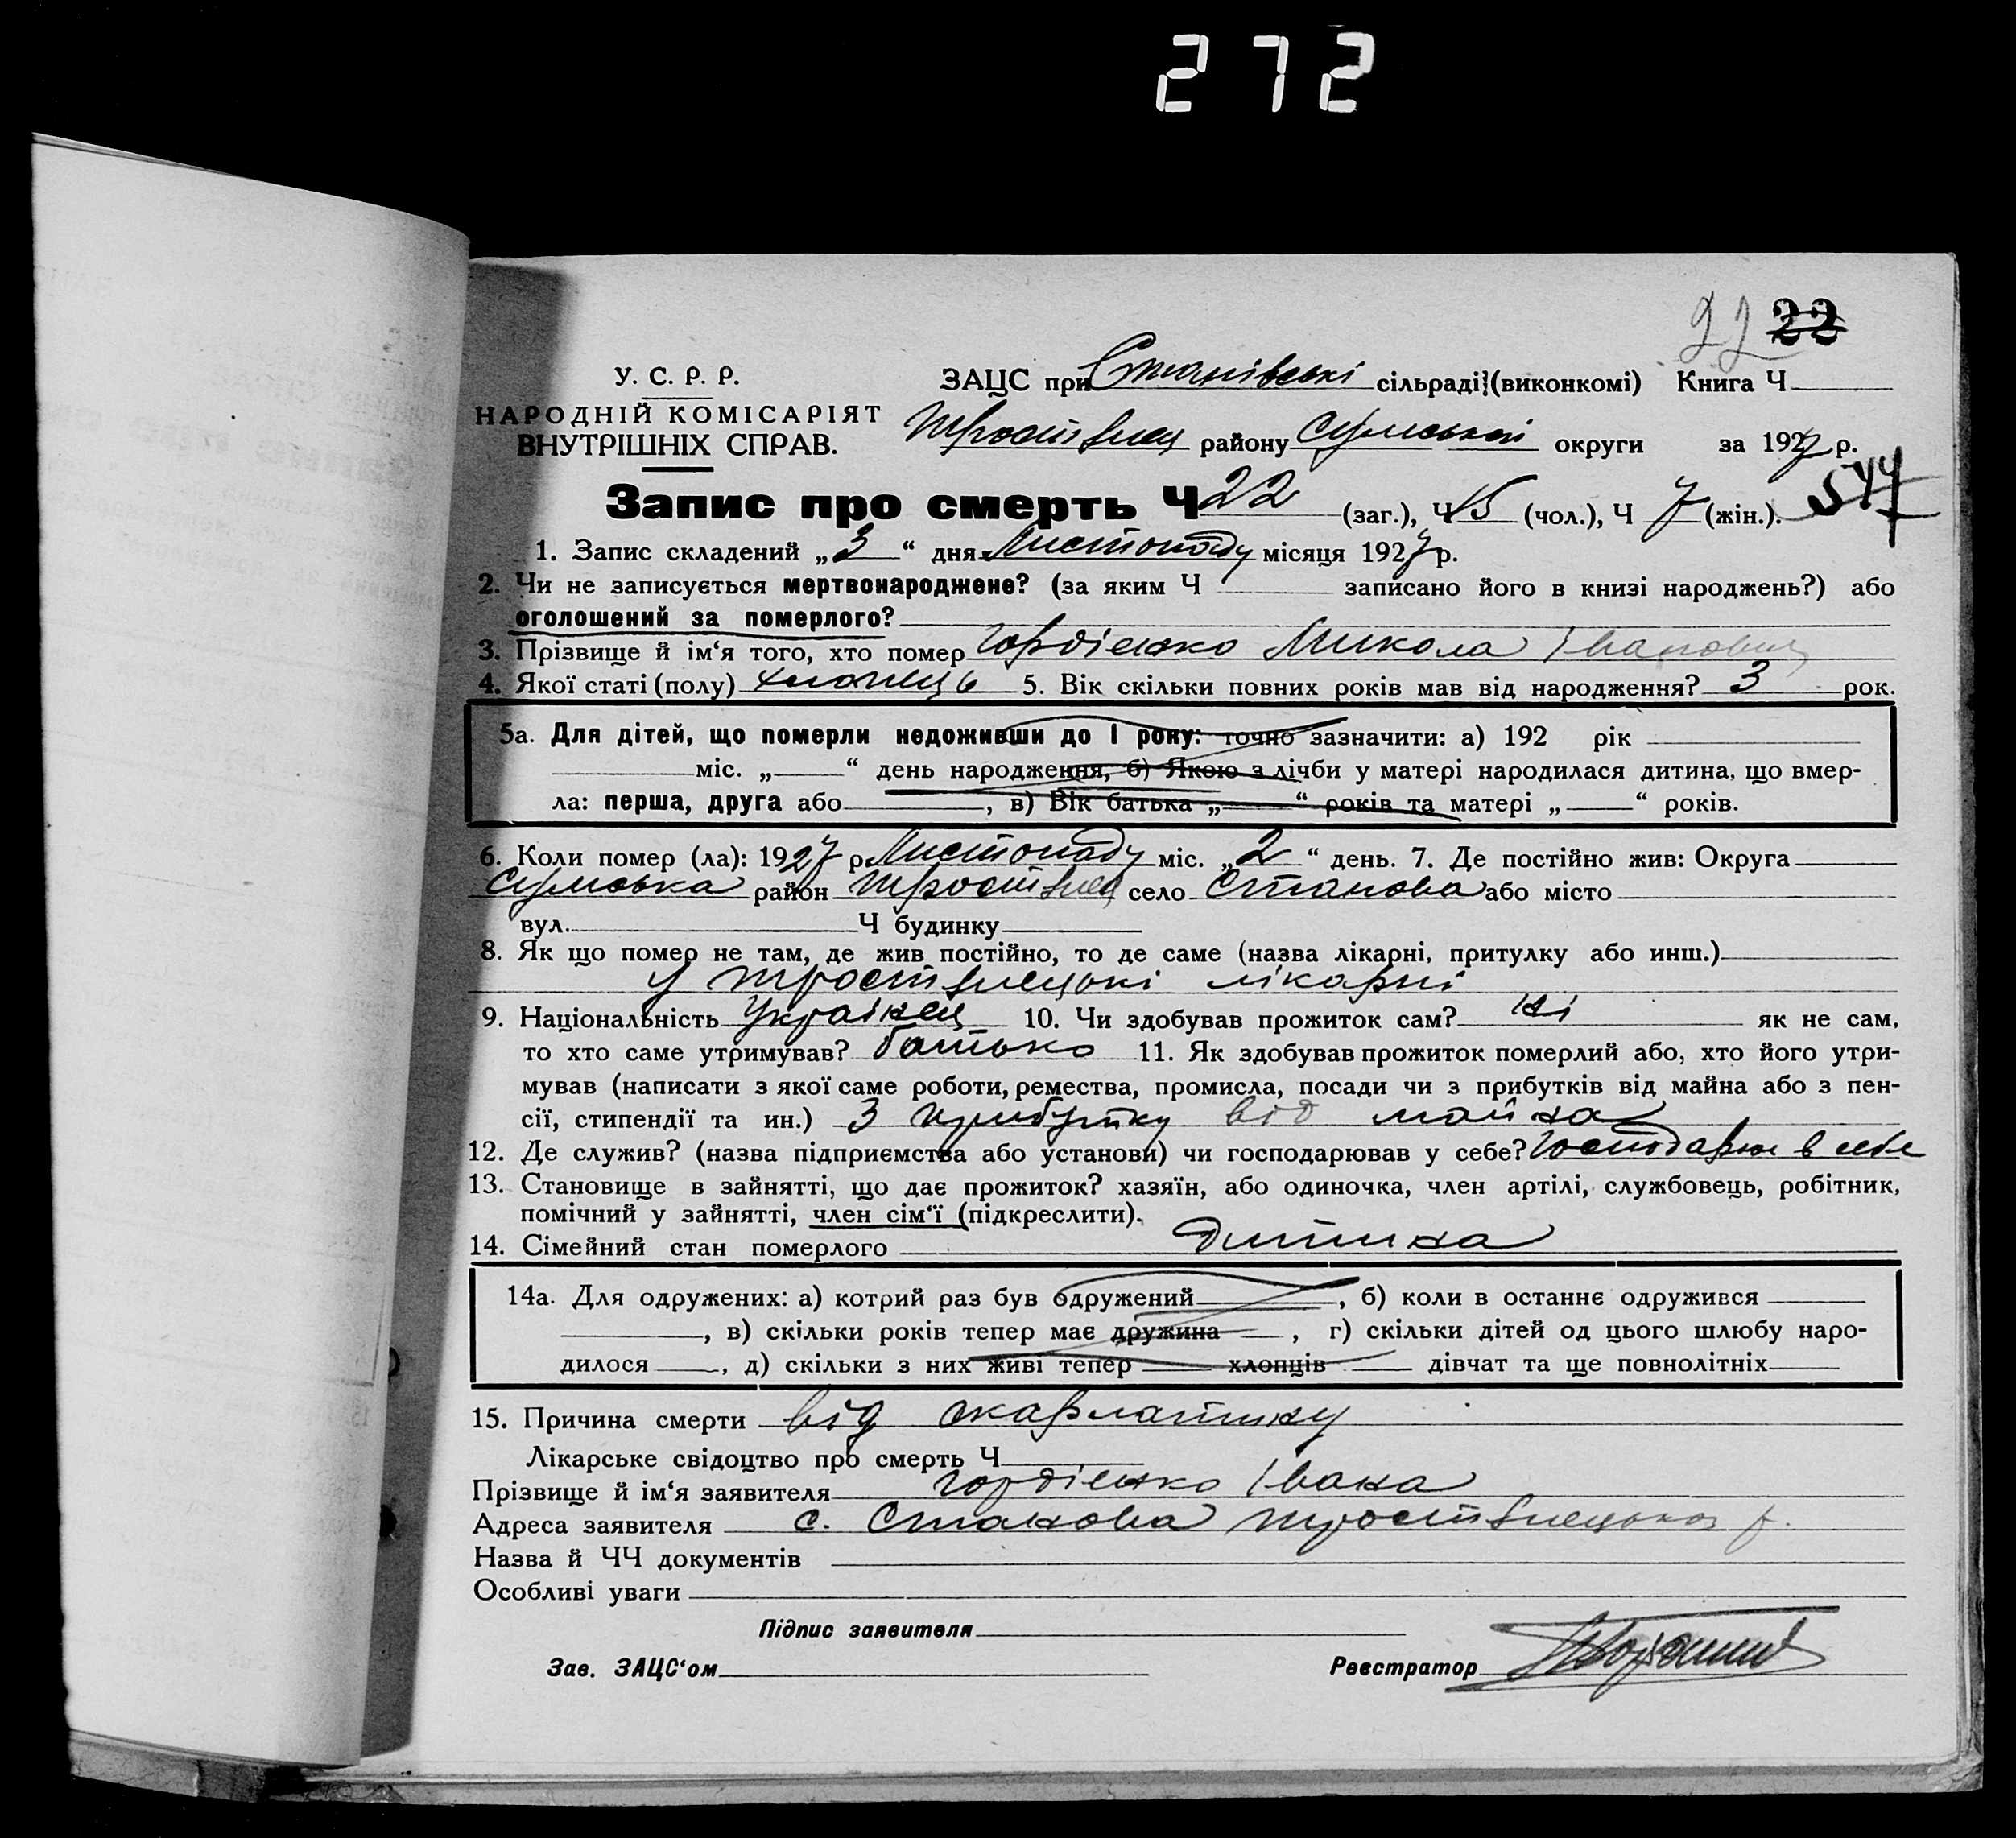 272
22 22
У. С. Р. Р.
НАРОДНІЙ КОМІСАРІЯТ
ВНУТРІШНІХ СПРАВ.
ЗАЦС при Станівські сільраді (виконкомі) Книга Ч
Тростянец району Сумської округи за 1927 р.
Запис про смерть Ч 22 (заг.), Ч 15 (чол.), Ч 7 (жін.). 544
1. Запис складений „3“ дня Листопаду місяця 1927 р.
2. Чи не записується мертвонароджене? (за яким Ч записано його в книзі народжень?) або
оголошений за померлого?
3. Прізвище й ім‘я того, хто помер Гордієнко Микола Іванович
4. Якої статі (полу) хлопець 5. Вік скільки повних років мав від народження? 3 рок.
5а. Для дітей, що померли недоживши до 1 року: точно зазначити: а) 192 рік
міс. „ “ день народження, б) Якою з лічби у матері народилася дитина, що вмер-
ла: перша, друга або , в) Вік батька „ “ років та матері „ “ років.
6. Коли помер (ла): 1927 р Листопаду міс. „2“ день. 7. Де постійно жив: Округа
Сумська район Тростянец село Станова або місто
вул. Ч будинку
8. Як що помер не там, де жив постійно, то де саме (назва лікарні, притулку або инш.)
у Тростянецькі лікарні
9. Національність Українец 10. Чи здобував прожиток сам? ні як не сам,
то хто саме утримував? батько 11. Як здобував прожиток померлий або, хто його утри-
мував (написати з якої саме роботи, ремества, промисла, посади чи з прибутків від майна або з пен-
сії, стипендії та ин.) З прибутку від майна
12. Де служив? (назва підприємства або установи) чи господарював у себе? Господарює в себе
13. Становище в зайнятті, що дає прожиток? хазяїн, або одиночка, член артілі, службовець, робітник,
помічний у зайнятті, член сім‘ї (підкреслити).
14. Сімейний стан померлого дитина
14а. Для одружених: а) котрий раз був одружений , б) коли в останнє одружився
, в) скільки років тепер має дружина , г) скільки дітей од цього шлюбу наро-
дилося , д) скільки з них живі тепер хлопців дівчат та ще повнолітніх
15. Причина смерти від скарлатини
Лікарське свідоцтво про смерть Ч
Прізвище й ім‘я заявителя Гордієнко Івана
Адреса заявителя с. Станова Тростянецького р.
Назва й ЧЧ документів
Особливі уваги
Підпис заявителя
Зав. ЗАЦС‘ом Реєстратор